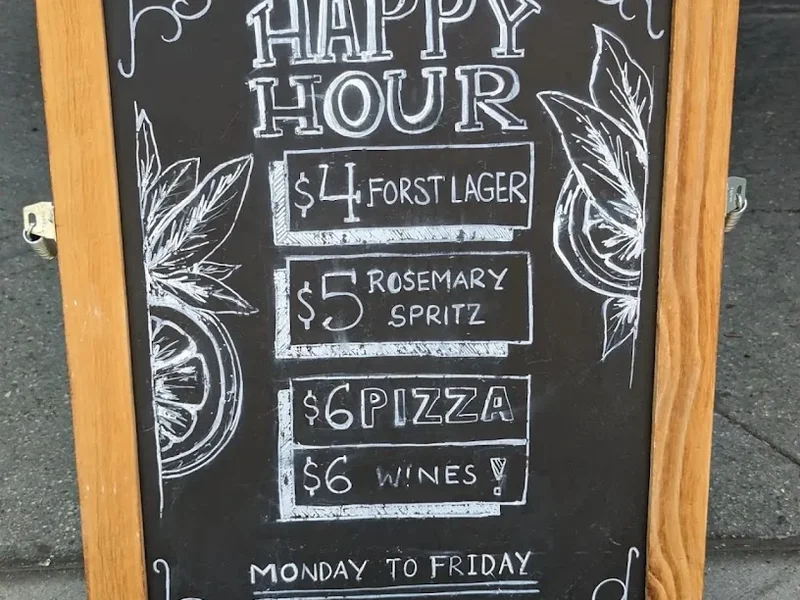 HAPPY
HOUR
$4 FORST LAGER
$5 ROSEMARY
SPRITZ
$6 PIZZA
$6 W!NES !
MONDAY TO FRIDAY